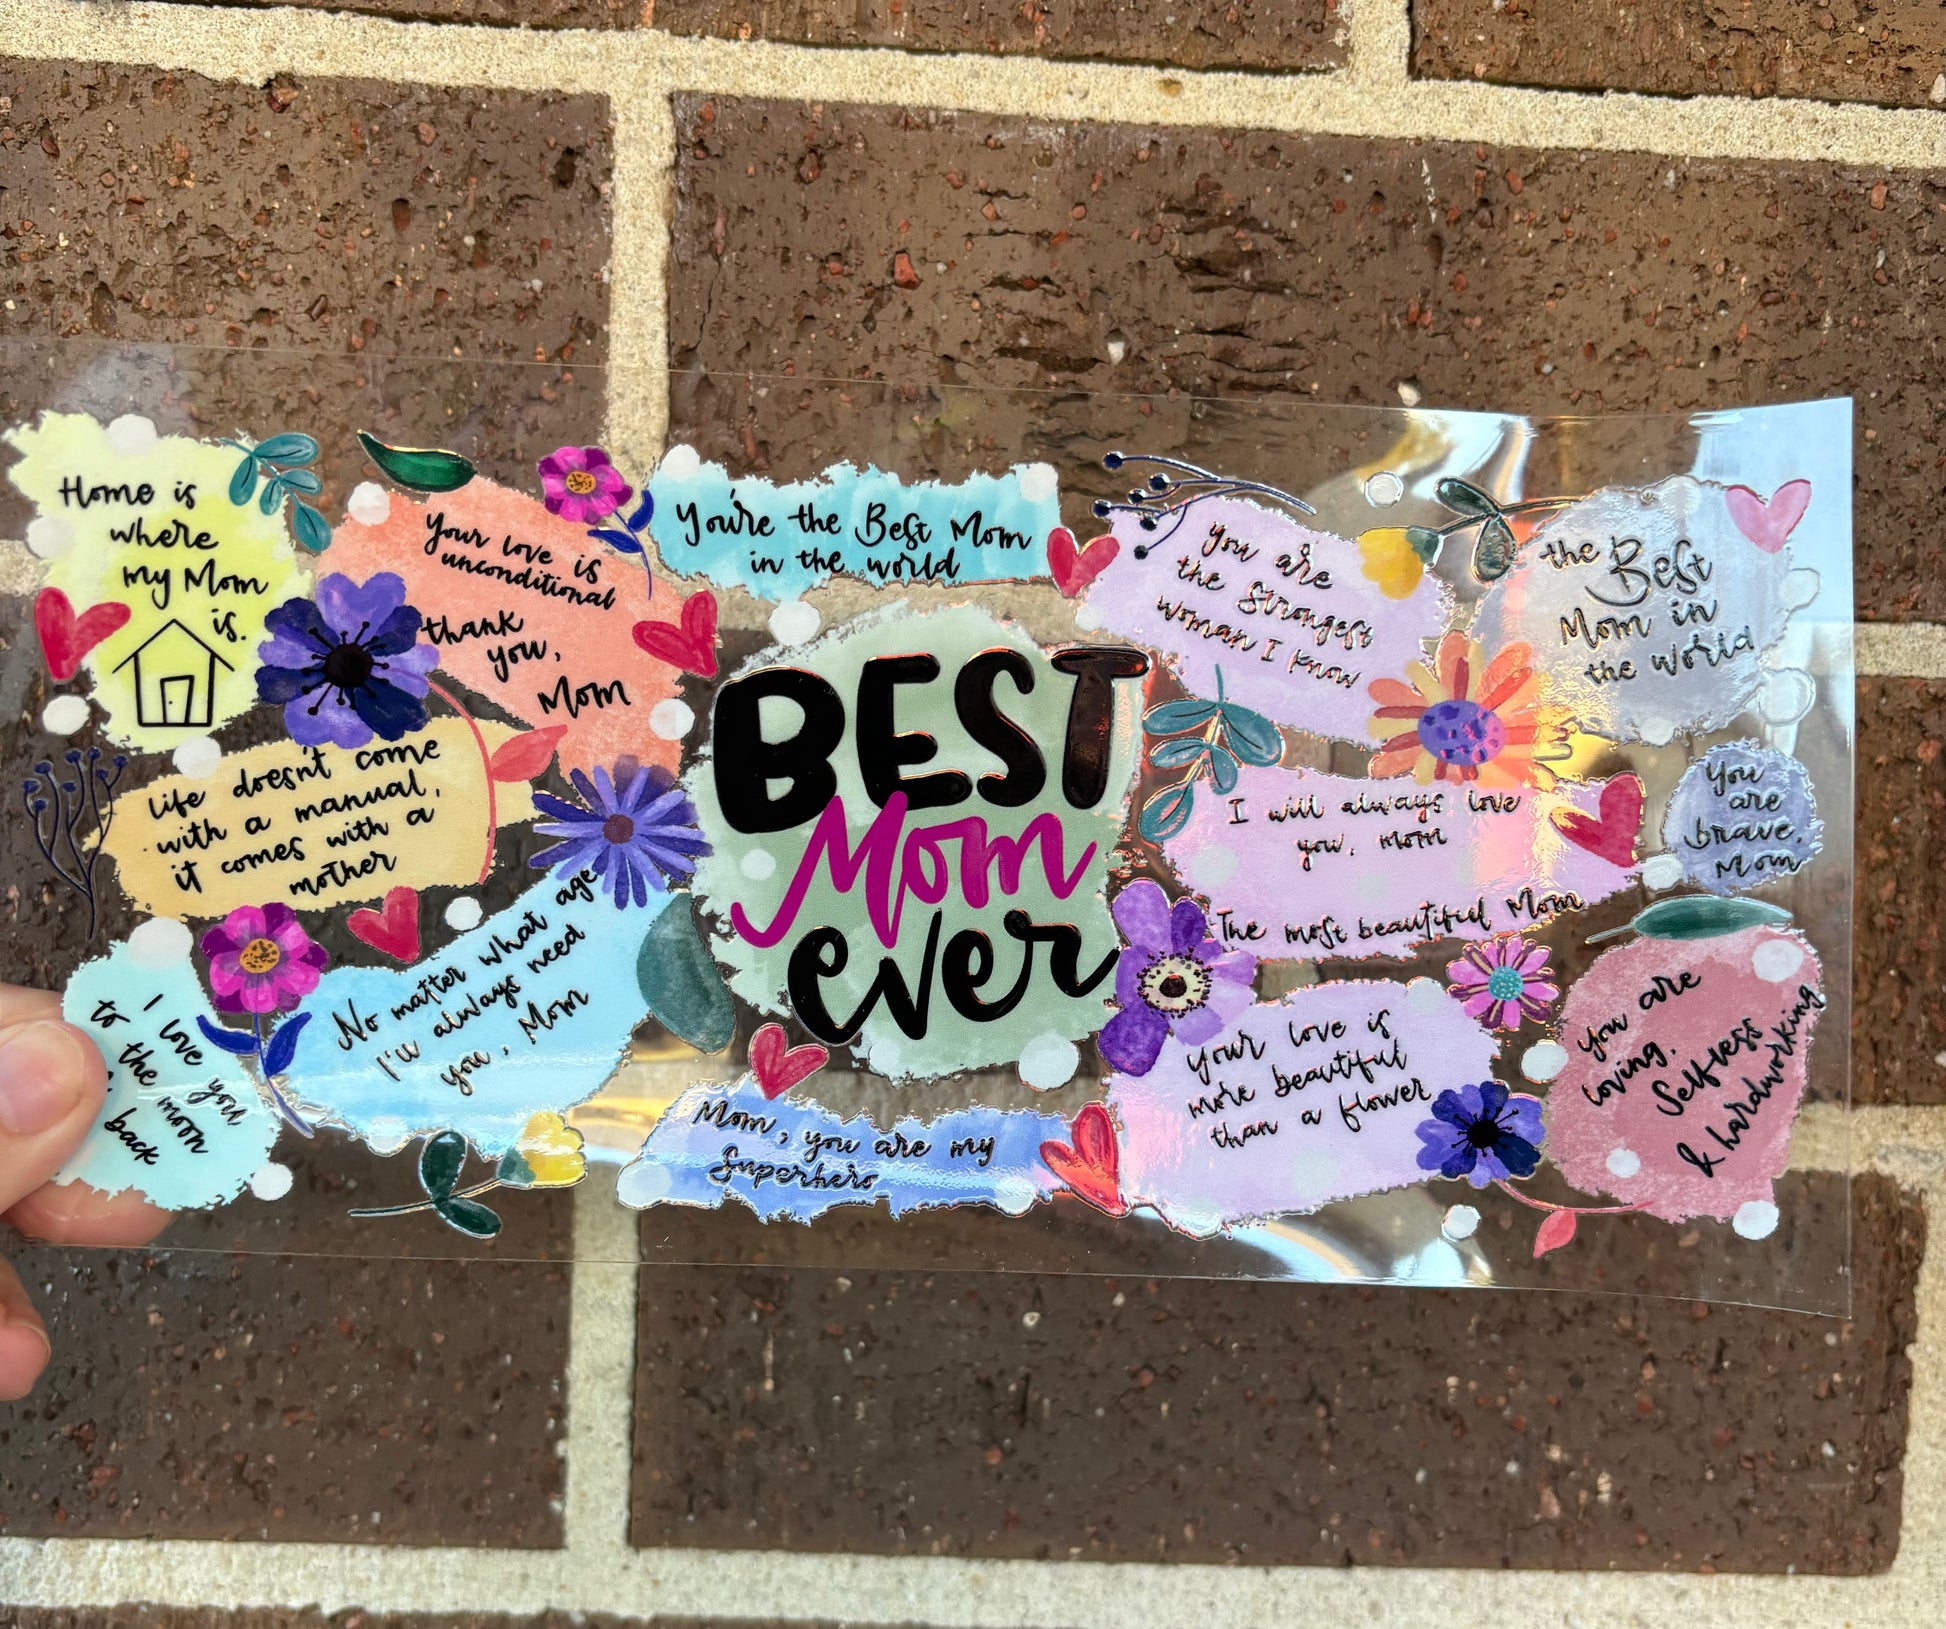 Home is
where
my Mom
is.
Your love is
unconditional
thank
you,
Mom
You're the Best Mom
in the world
You are
the Strongest
Woman I Know
the Best
Mom in
the World
life doesn't come
with a manual,
it comes with a
mother
BEST
Mom
ever
I will always love
you, mom
The most beautiful Mom
You
are
brave,
Mom
I love you
to the moon
back
No matter what age
I'll always need
you, Mom
Mom, you are my
Superhero
your love is
more beautiful
than a flower
You are
loving,
Selfless
& hardworking